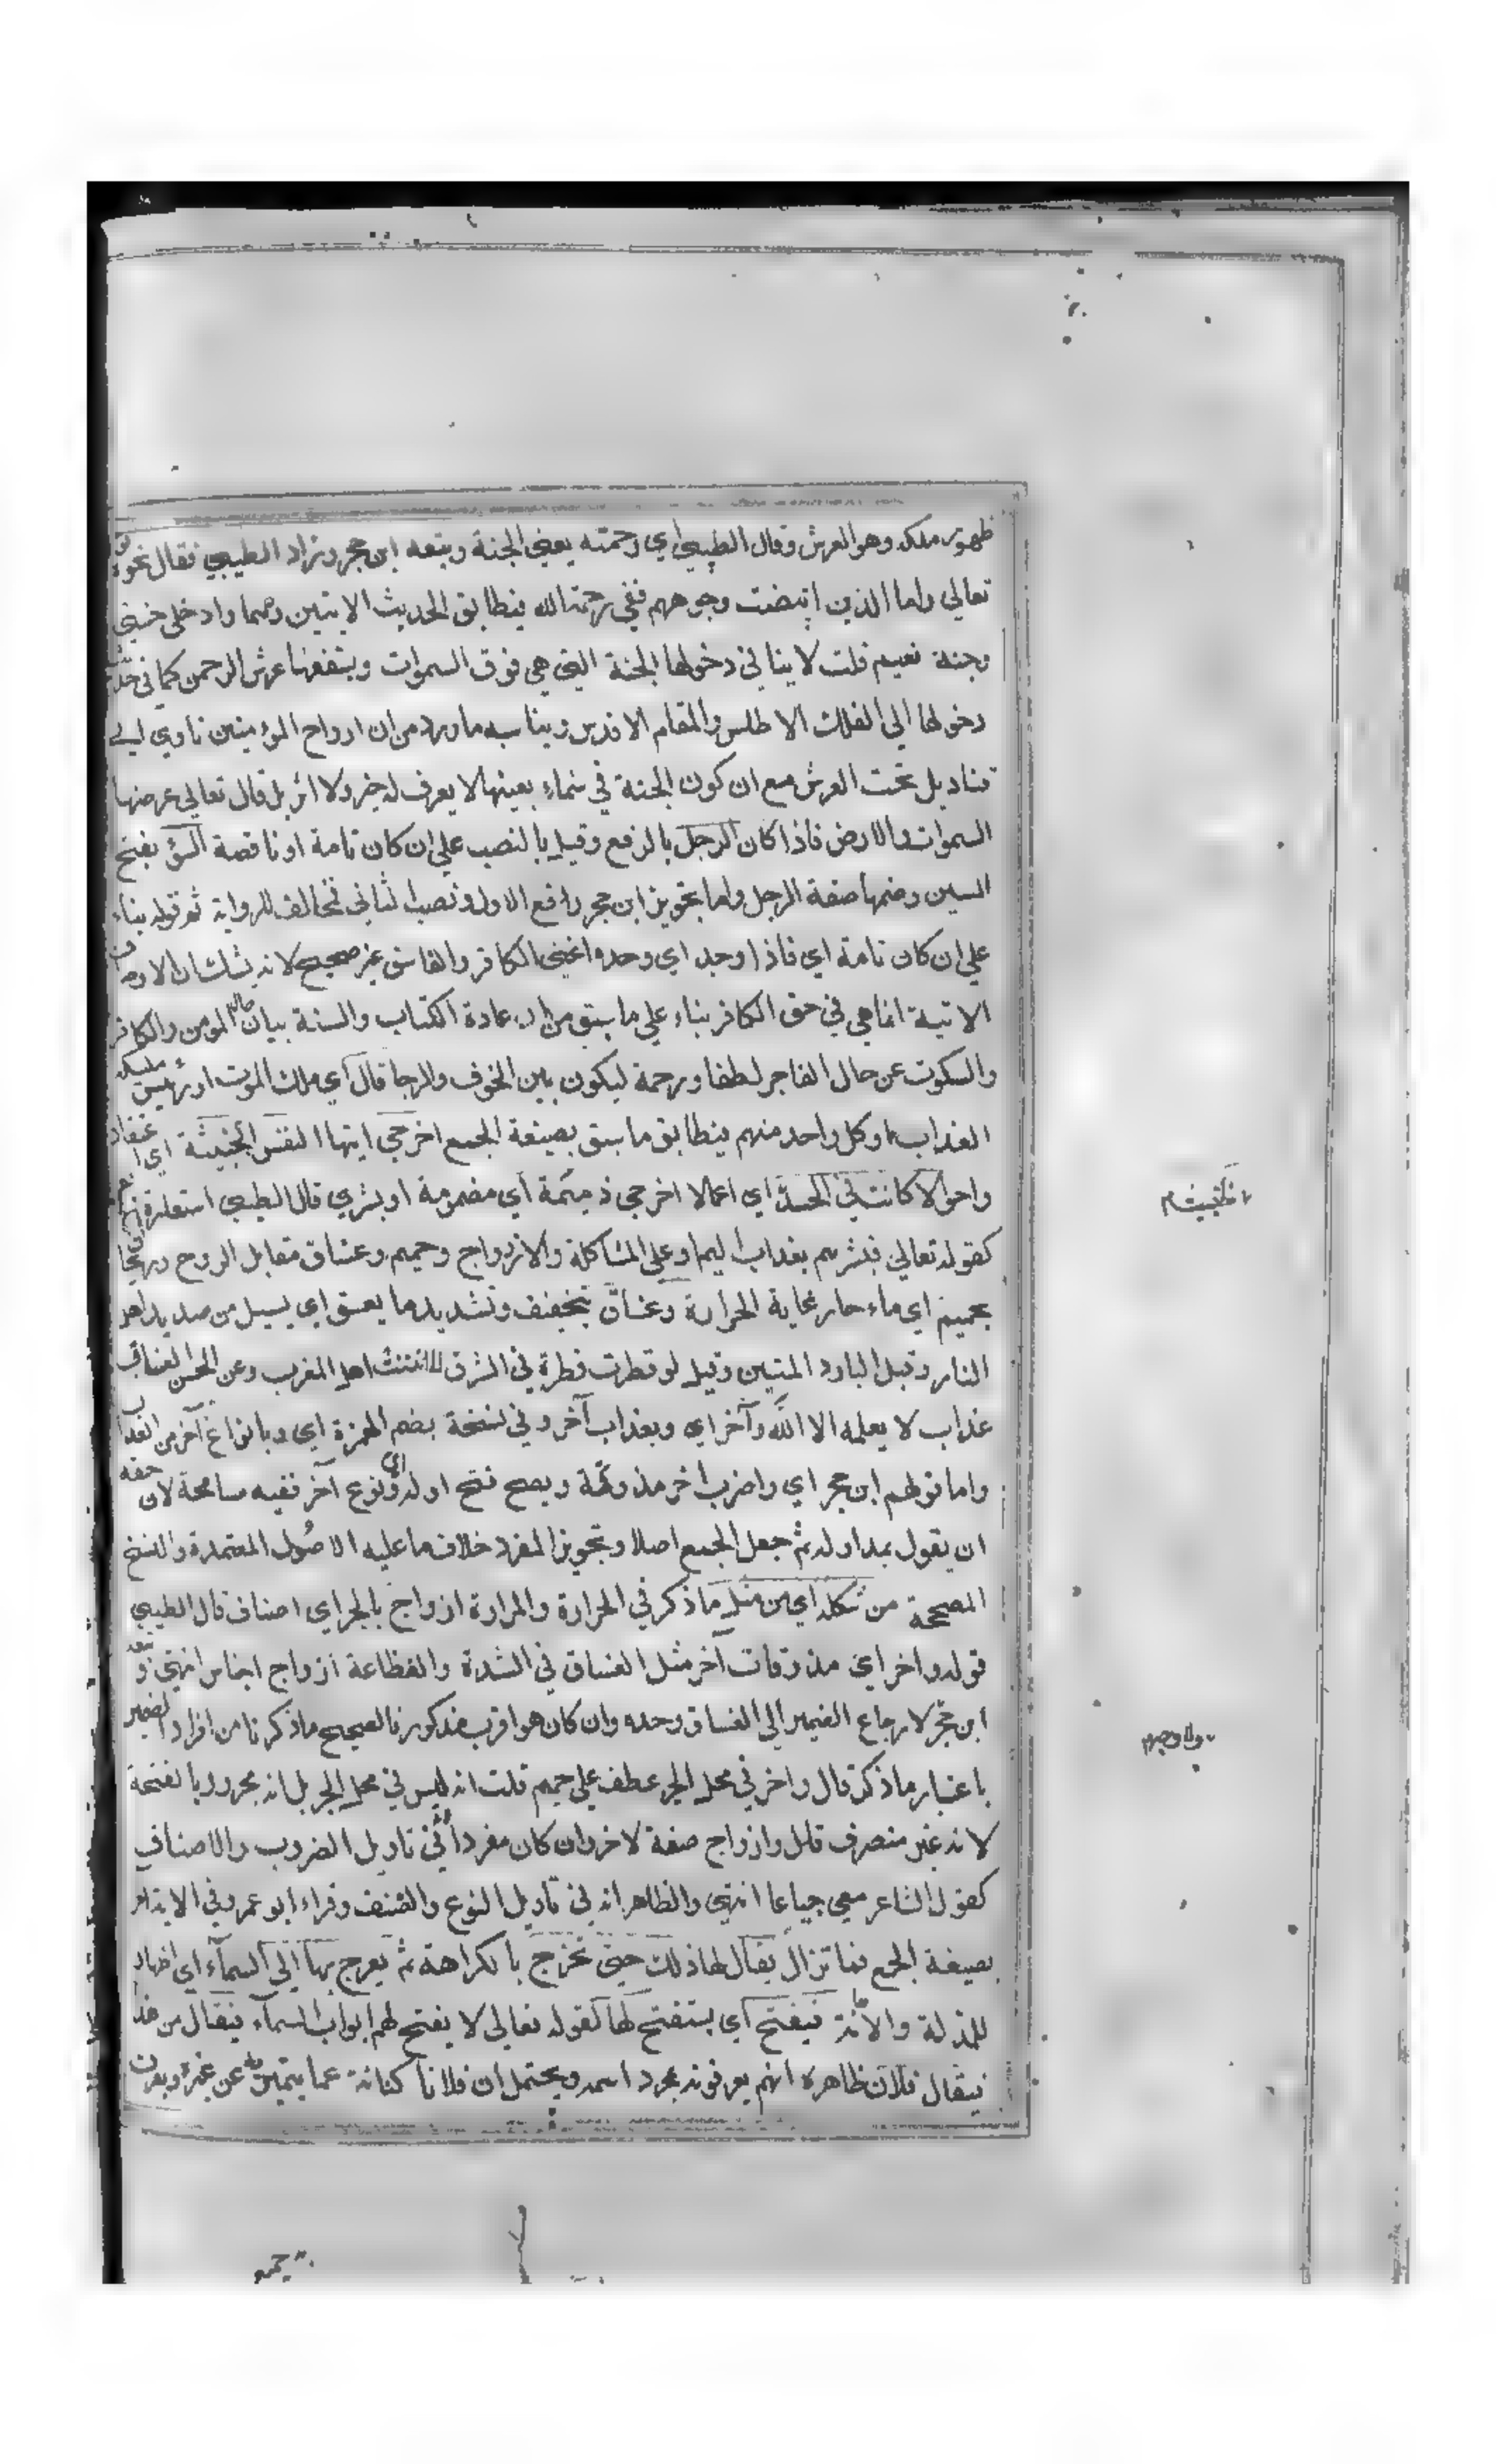 ظهور ملكه وهو العرش وقال الطيبي اي رحمته يعني الجنة وتبعه ابن حجر وزاد الطيبي فقال نحوه
تعالي واما الذين ابيضت وجوههم ففي رحمة الله فيطابق الحديث الايتين وهما وادخلي جنتي
وجنة نعيم قلت لا ينافي دخولها الجنة التي هي فوق السموات وسقفها عرش الرحمن كما في حديث
دخولها الي الفلك الاطلس والمقام الاقدس ويناسبه ما ورد من ان ارواح المؤمنين تاوي الي
قناديل تحت العرش مع ان كون الجنة في سماء بعينها لا يعرف له خبر ولا اثر بل قال تعالي عرضها
السموات والارض فاذا كان الرجل بالرفع وقيل بالنصب علي ان كان تامة او ناقصة السوء بفتح
السين وضمها صفة الرجل واما تجويز ابن حجر رافع الاول ونصب الثاني فمخالف للرواية ثم قوله بناء
علي ان كان تامة اي فاذا وجد اي وحده اعني الكافر والفاسق غير صحيح لانه تلك الاوصاف
الاتية انما هي في حق الكافر بناء علي ما سبق من ان عادة الكتاب والسنة بيان حال المومن والكافر
والسكوت عن حال الفاجر لطفا ورحمة ليكون بين الخوف والرجا قال اي ملك الموت او رئيس ملئكة
العذاب او كل واحد منهم فيطابق ما سبق بصيغة الجمع اخرجي ايتها النفس الخبيثة اي اعتقادا
واحوالا كانت في الجسد اي اعمالا اخرجي ذميمة اي مضمومة اوبشري قال الطيبي استعارة
كقوله تعالي فبشرهم بعذاب اليم او علي المشاكلة والازدواج وحميم وغساق مقابل الروح وريحان
بحميم اي ماء حار غاية الحرارة وغساق بتخفيف وتشديد ما يغسق اي يسيل من صديد اهل
النار وقيل البارد المنتن وقيل لو قطرت قطرة في المشرق لانتنت اهل المغرب وعن الحسن الغساق
عذاب لا يعلمه الا الله وآخر اي وبعذاب آخر وفي نسخة بضم الهمزة اي وبانواع آخر من العذاب
واما قولهم ابن حجر اي واضرب اخر مذوقة ويصح فتح اوله اي ونوع آخر ففيه مسامحة لان حقه
ان يقول بمد اوله ثم جعل الجمع اصلا وتجويز المفرد خلاف ما عليه الاصول المعتمدة والنسخ
المصححة من شكله اي من مثل ما ذكر في الحرارة والمرارة ازواج بالجر اي اصناف قال الطيبي
قوله واخر اي مذوقات آخر مثل الغساق في الشدة والفظاعة ازواج اجناس انتهي وتبعه
ابن حجر لارجاع الضمير الي الغساق وحده وان كان هو اقرب مذكور فالصحيح ما ذكرنا من افراد الضمير
باعتبار ما ذكر قال واخر في محل الجر عطف علي حميم قلت انه ليس في محل الجر بل انه مجرور بالفتحة
لانه غير منصرف قال وازواج صفة لاخر وان كان مفردا في تاويل الضروب والاصناف
كقول الشاعر معي جياعا انتهي والظاهر انه في تاويل النوع والصنف وقراء ابو عمرو في الاية
بصيغة الجمع فما تزال يقال لها ذلك حتي تخرج بالكراهة ثم يعرج بها الي السماء اي اظهارا
للمذلة والاهانة فيفتح اي يستفتح لها كقوله تعالي لا يفتح لهم ابواب السماء فيقال من هذا
فيقال فلان ظاهره انهم يعرفونه بمجرد اسمه ويحتمل ان فلانا كناية عما يتميز به عن غيره ويعرف